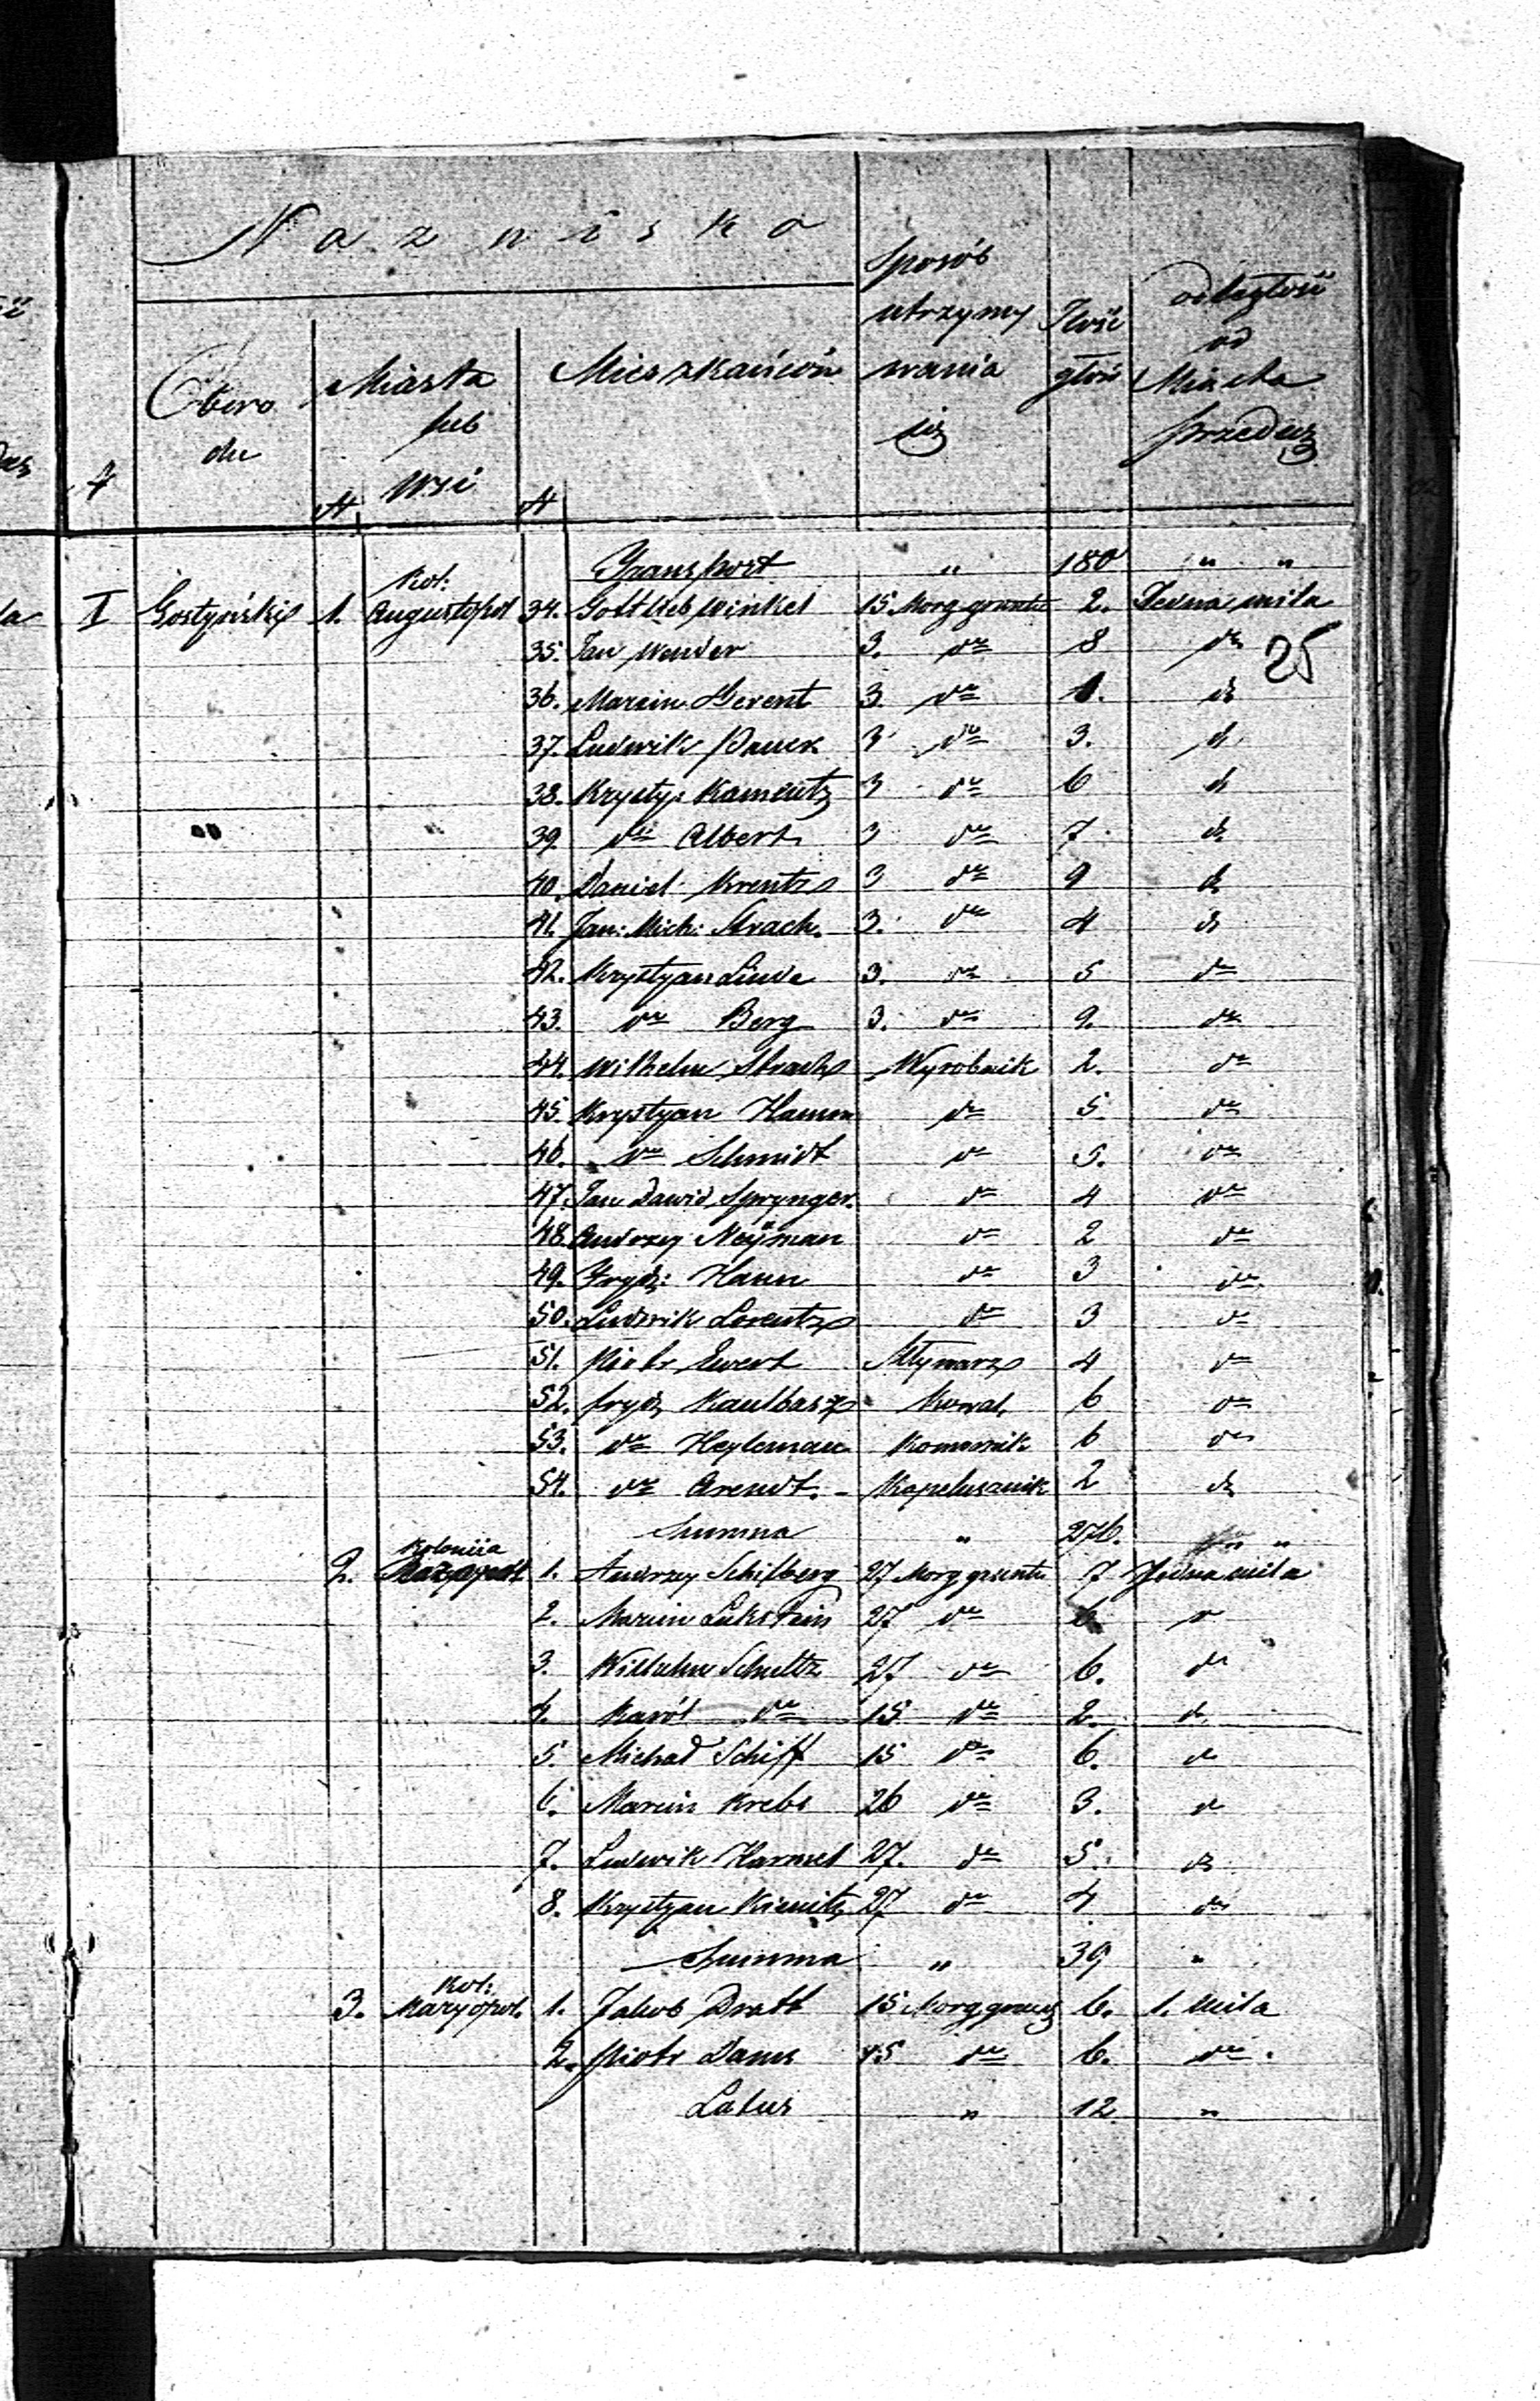 Nazwiska
Obwo
du
Miasta
lub
wsi
Mieszkańców
Sposób
utrzymy
wania
się
Ilość
głów
odległość
od
Miasta
Przedecz
№ №
Transport " 180 " "
I Gostyński 1. Kol: Augustopol 34. Gottlieb Winkel 15. Morg gruntu 2. Jedna mila
35. Jan Wender 3. dto 8 dto
25
36. Marcin Gerent 3. dto 1. dto
37. Ludwik Pauck 3 dto 3. dto
38. Krysty: Kamentz 3 dto 6 dto
39 dto Albert 3 dto 7 dto
40. Daniel Krentz 3 dto 9 dto
41. Jan: Mich: Strach. 3. dto 4 dto
42. Krystyan Linde 3. dto 5 dto
43. dto Berg 3. dto 9. dto
44. Wilhelm Strach Wyrobnik 2. dto
45. Krystyan Hamm dto 5. dto
46. dto Schmidt dto 5. dto
47. Jan Dawid Sprynger. dto 4 dto
48. Andrzey Neÿman dto 2 dto
49. Fryd: Hann dto 3 dto
50. Ludwik Lorentz dto 3 dto
51. Piotr Ewert Młynarz 4 dto
52. fryd, Kaulbasz Kowal 6 dto
53. dto Heyleman Komornik 6 dto
54. dto Arendt. Kapelusznik 2 dto
Summa " 276. " "
2. Koloniia 1. Andrzey Schilberg 27 Morg gruntu 7 Jedna mila
2. Marcin 27 dto dto
3. Wilhelm Schultz 27 dto 6. dto
4. Karól dto 15 dto 2. dto
5. Michał Schiff 15 dto 6. dto
6. Marcin Krebs 26 dto 3. dto
7. Ludwik Harmel 27. dto 5. dto
8. Krystyan Kienitz 27 dto 4 dto
Summa " 39 "
3. Kol: Maryopol. 1. Jakob Dratt 15 Morg grun 6. 1. Mila
2. Piotr Dams 45 dto 6. dto
Latus " 12 "